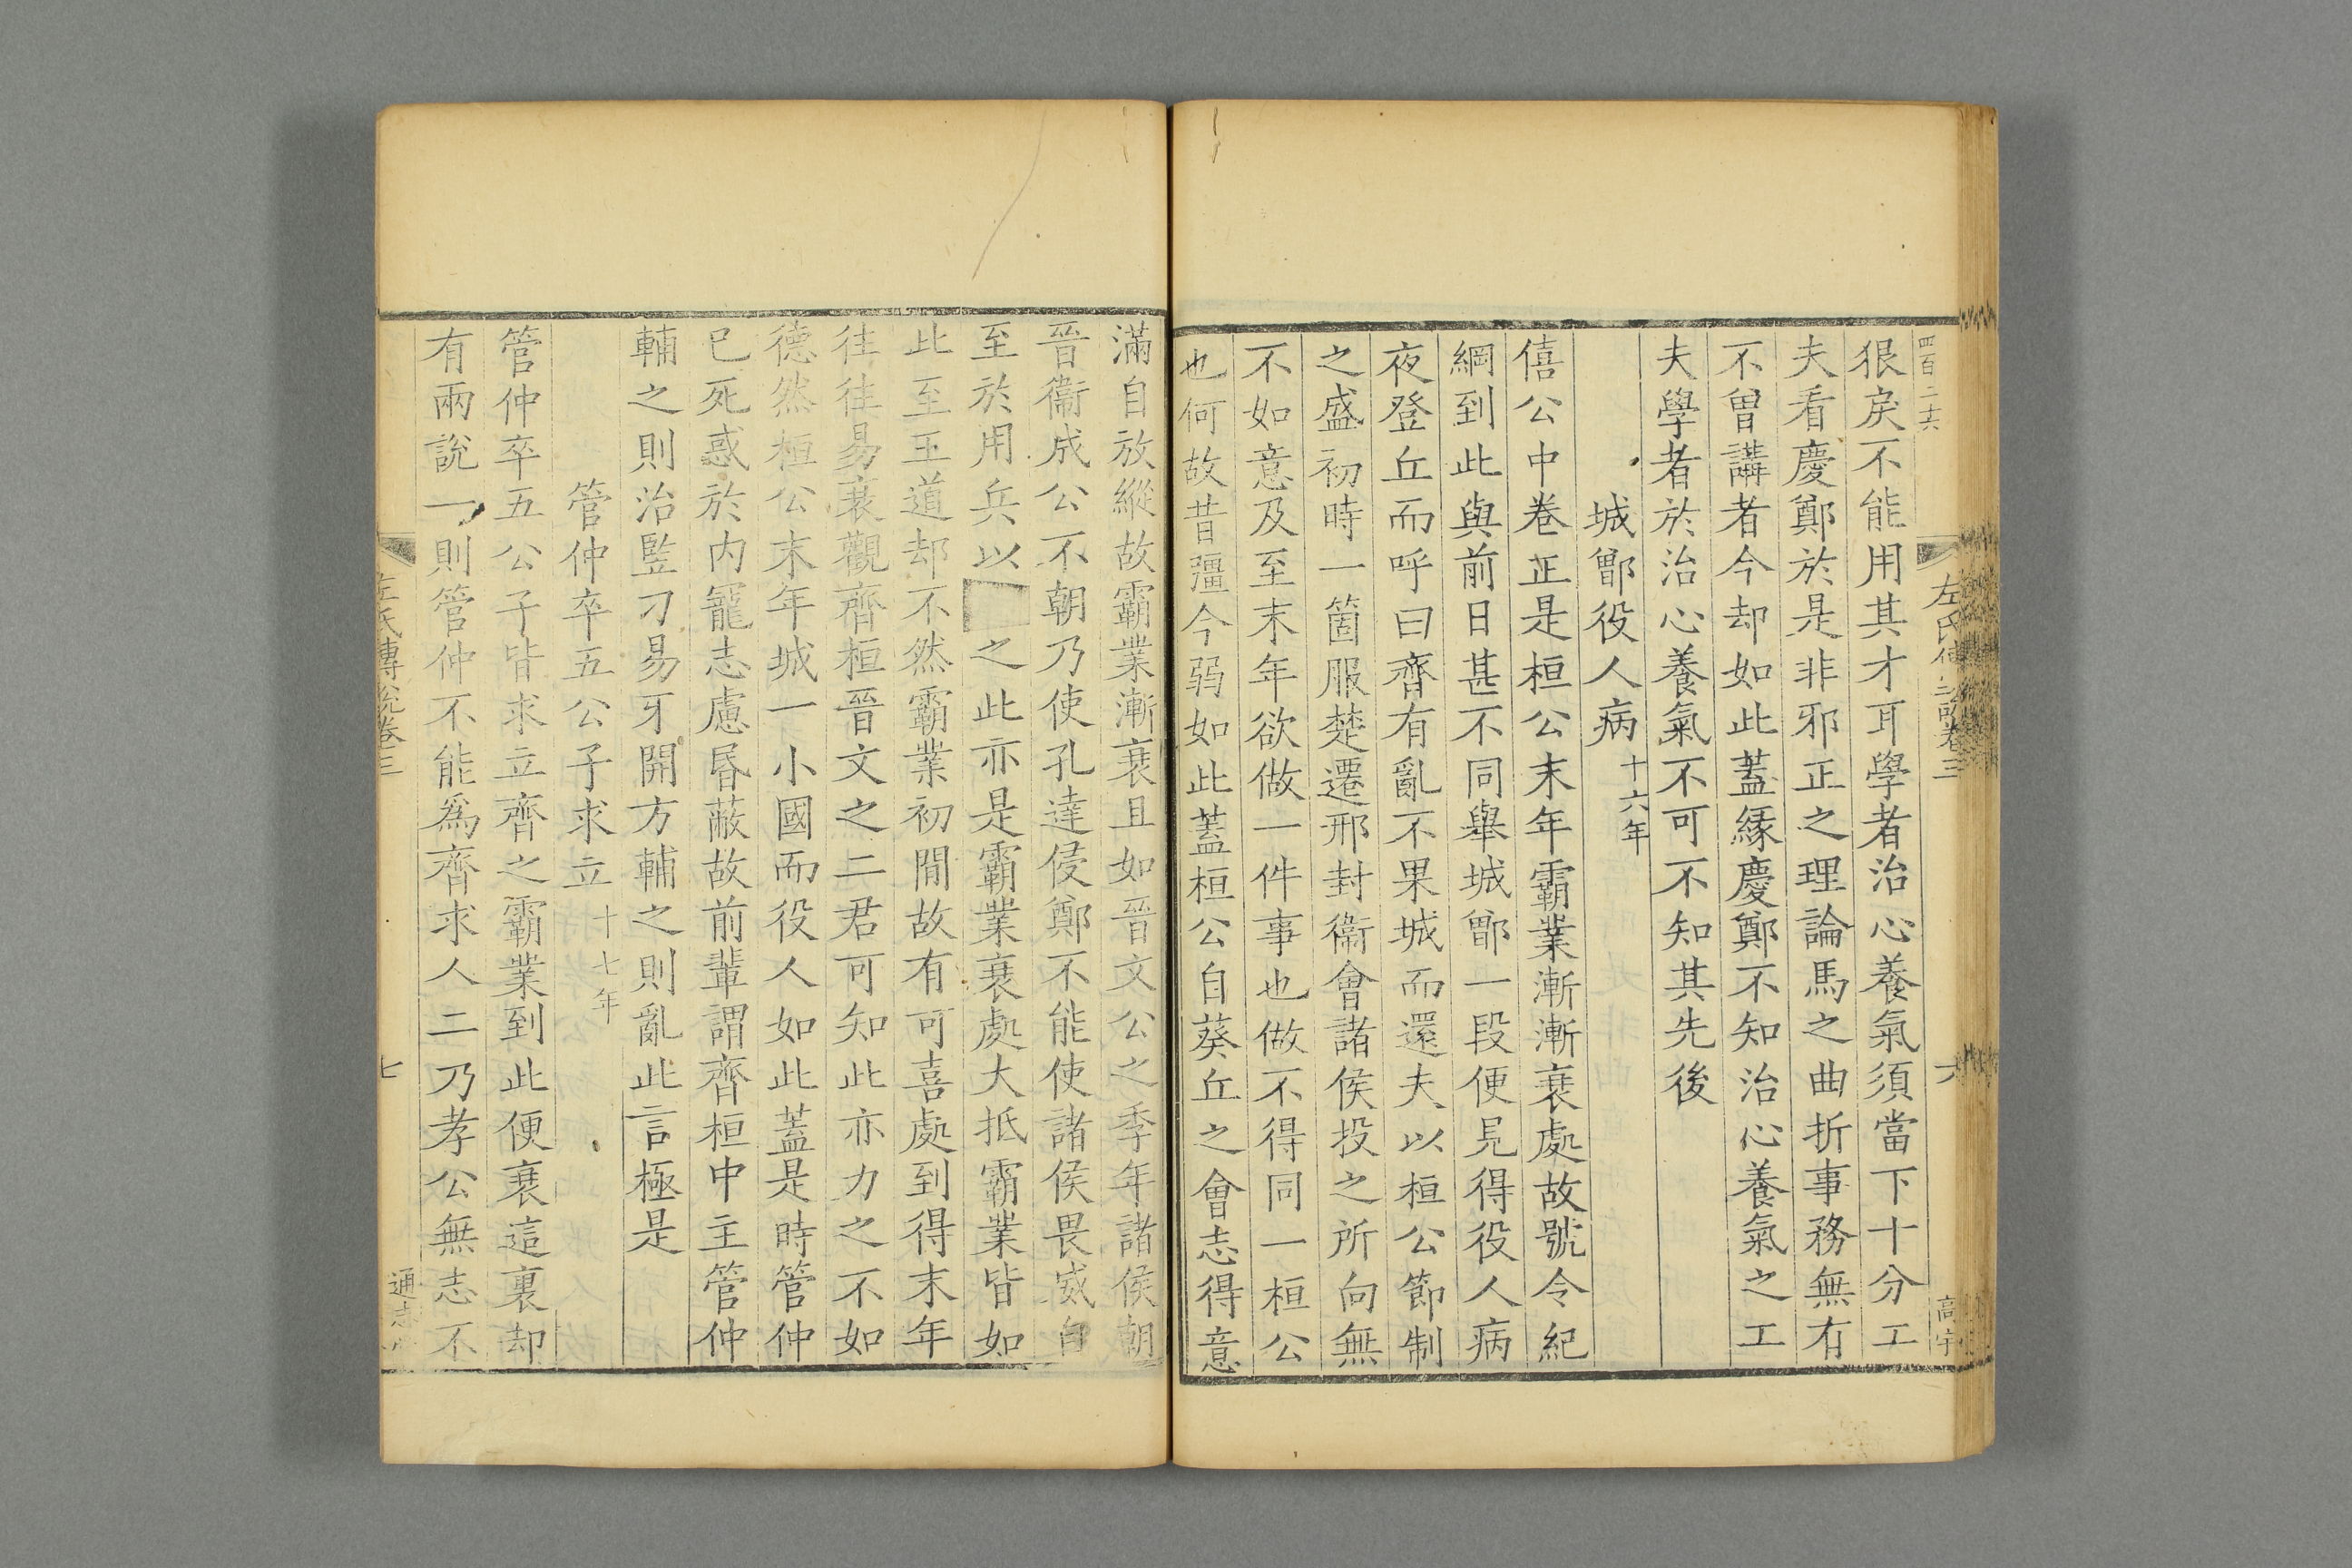 四百二十六
左氏傳說卷三
六
高宇
狠戾不能用其才耳學者治心養氣須當下十分工
夫看慶鄭於是非邪正之理論馬之曲折事務無有
不曾講者今却如此蓋緣慶鄭不知治心養氣之工
夫學者於治心養氣不可不知其先後
城鄫役人病十六年
僖公中卷正是桓公末年霸業漸漸衰處故號令紀
綱到此與前日甚不同舉城鄫一段便見得役人病
夜登丘而呼曰齊有亂不果城而還夫以桓公節制
之盛初時一箇服楚遷邢封衞會諸侯投之所向無
不如意及至末年欲做一件事也做不得同一桓公
也何故昔彊今弱如此蓋桓公自葵丘之會志得意
滿自放縱故霸業漸衰且如晉文公之季年諸侯朝
晉衞成公不朝乃使孔達侵鄭不能使諸侯畏威自
至於用兵以之此亦是霸業衰處大抵霸業皆如
此至王道却不然霸業初間故有可喜處到得末年
往往易衰觀齊桓晉文之二君可知此亦力之不如
德然桓公末年城一小國而役人如此蓋是時管仲
已死惑於内寵志慮昬蔽故前輩謂齊桓中主管仲
輔之則治豎刁易牙開方輔之則亂此言極是
管仲卒五公子求立十七年
管仲卒五公子皆求立齊之霸業到此便衰這裏却
有兩說一則管仲不能爲齊求人二乃孝公無志不
左氏傳說卷三
七
通志